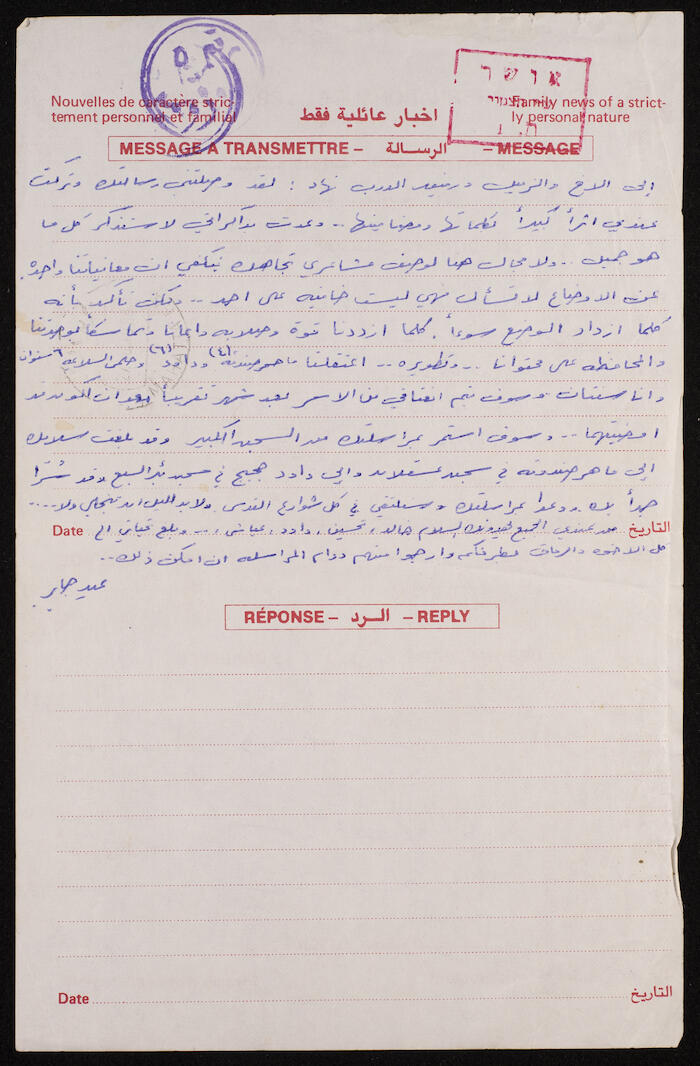 Nouvelles de caractère stric-
tement personnel et familial
اخبار عائلية فقط
Family news of a strict-
ly personal nature
אושר
MESSAGE A TRANSMETTRE – الرسالة – MESSAGE
إلى الاخ والزميل ورفيق الدرب نهاد : لقد وصلتني رسالتك وتركت
عندي اثراً كبيراً بكلماتها ومضامينها .. وعدت بذاكراتي لاستذكر كل ما
هو جميل .. ولا مجال هنا لوصف مشاعري تجاهك فيكفي ان معاناتنا واحدة
عن الاوضاع لا تسأل فهي ليست خافيه على احد .. ولكن تأكد بأنه
كلما ازداد الوضع سوءاً . كلما ازددنا قوة وصلابه وايماناً وتماسكاً بوحدتنا
والمحافظه على محتوانا .. وتطويره .. اعتقلنا ماهر صندوقه (٤) وداود (٦) وحلمي ٦ سنوات
وانا سنتان وسوف يتم من الاسر بعد شهر تقريباً بعد ان اكون قد
امضيتهما .. وسوف استمر بمراسلتك من السجن الكبير وقد بلغت سلامك
إلى ماهر صندوقه في سجن عسقلان والى داود في سجن بئر السبع وقد
بمراسلتك وسنلتقي في كل شوارع القدس ولا بد لليل ان ينجلي ولا ....
التاريخ من عندي الجميع بسلام خالد ، تحسين ، داود ، ... وبلغ تحياتي الى Date
كل الاخوة والرفاق بطرفكم وارجوا منهم دوام المراسله ان امكن ذلك ..
RÉPONSE – الرد – REPLY
Date التاريخ